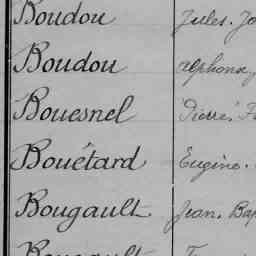 Boudou Jules. Jo
Boudou Alphonse,
Bouesnel Pierre, F
Bouétard Eugène.
Bougault Jean. Bap
Bougault